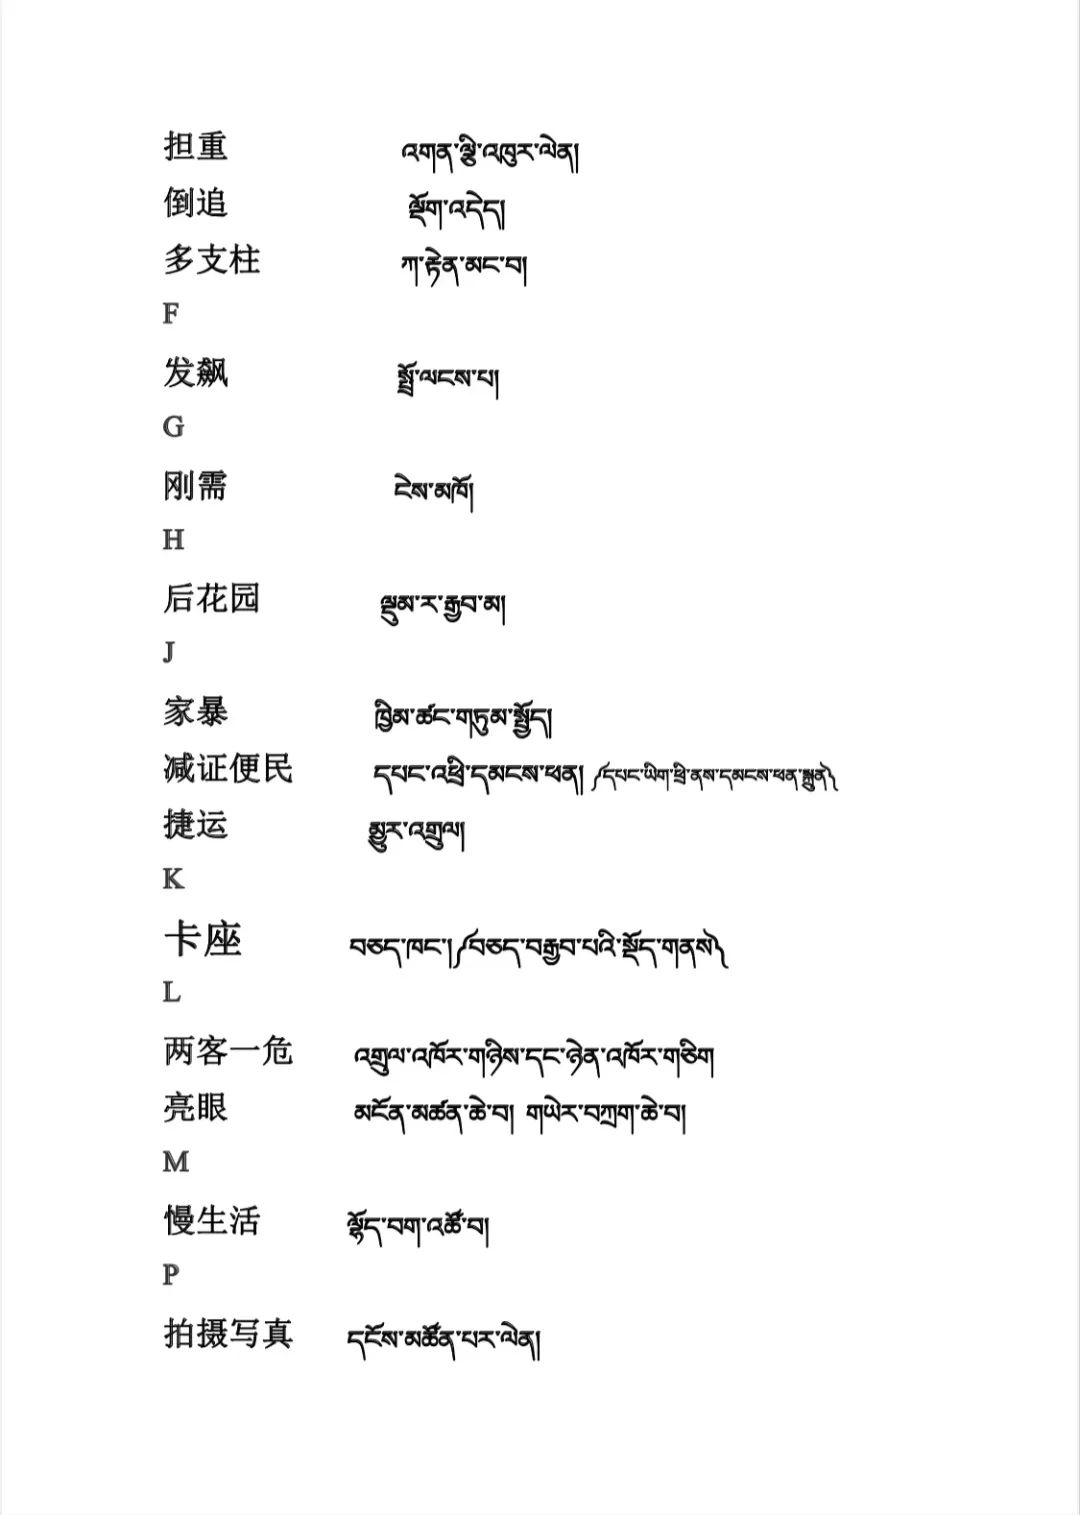 担重 འགན་ལྕི་འཁུར་ལེན།
倒追 ལྡོག་འདེད།
多支柱 ཀ་རྟེན་མང་བ།
F
发飙 སྤྲོ་ལངས་པ།
G
刚需 ངེས་མཁོ།
H
后花园 ལྡུམ་ར་རྒྱབ་མ།
J
家暴 ཁྱིམ་ཚང་གཏུམ་སྤྱོད།
减证便民 དཔང་འཕྲི་དམངས་ཕན། ༼དཔང་ཡིག་ཕྲི་ནས་དམངས་ཕན་སྐྲུན༽
捷运 མྱུར་འགྲུལ།
K
卡座 བཅད་ཁང་། ༼བཅད་བརྒྱབ་པའི་སྡོད་གནས༽
L
两客一危 འགྲུལ་འཁོར་གཉིས་དང་ཉེན་འཁོར་གཅིག
亮眼 མངོན་མཚན་ཆེ་བ། གཡེར་བཀྲག་ཆེ་བ།
M
慢生活 ལྷོད་བག་འཚོ་བ།
P
拍摄写真 དངོས་མཚོན་པར་ལེན།